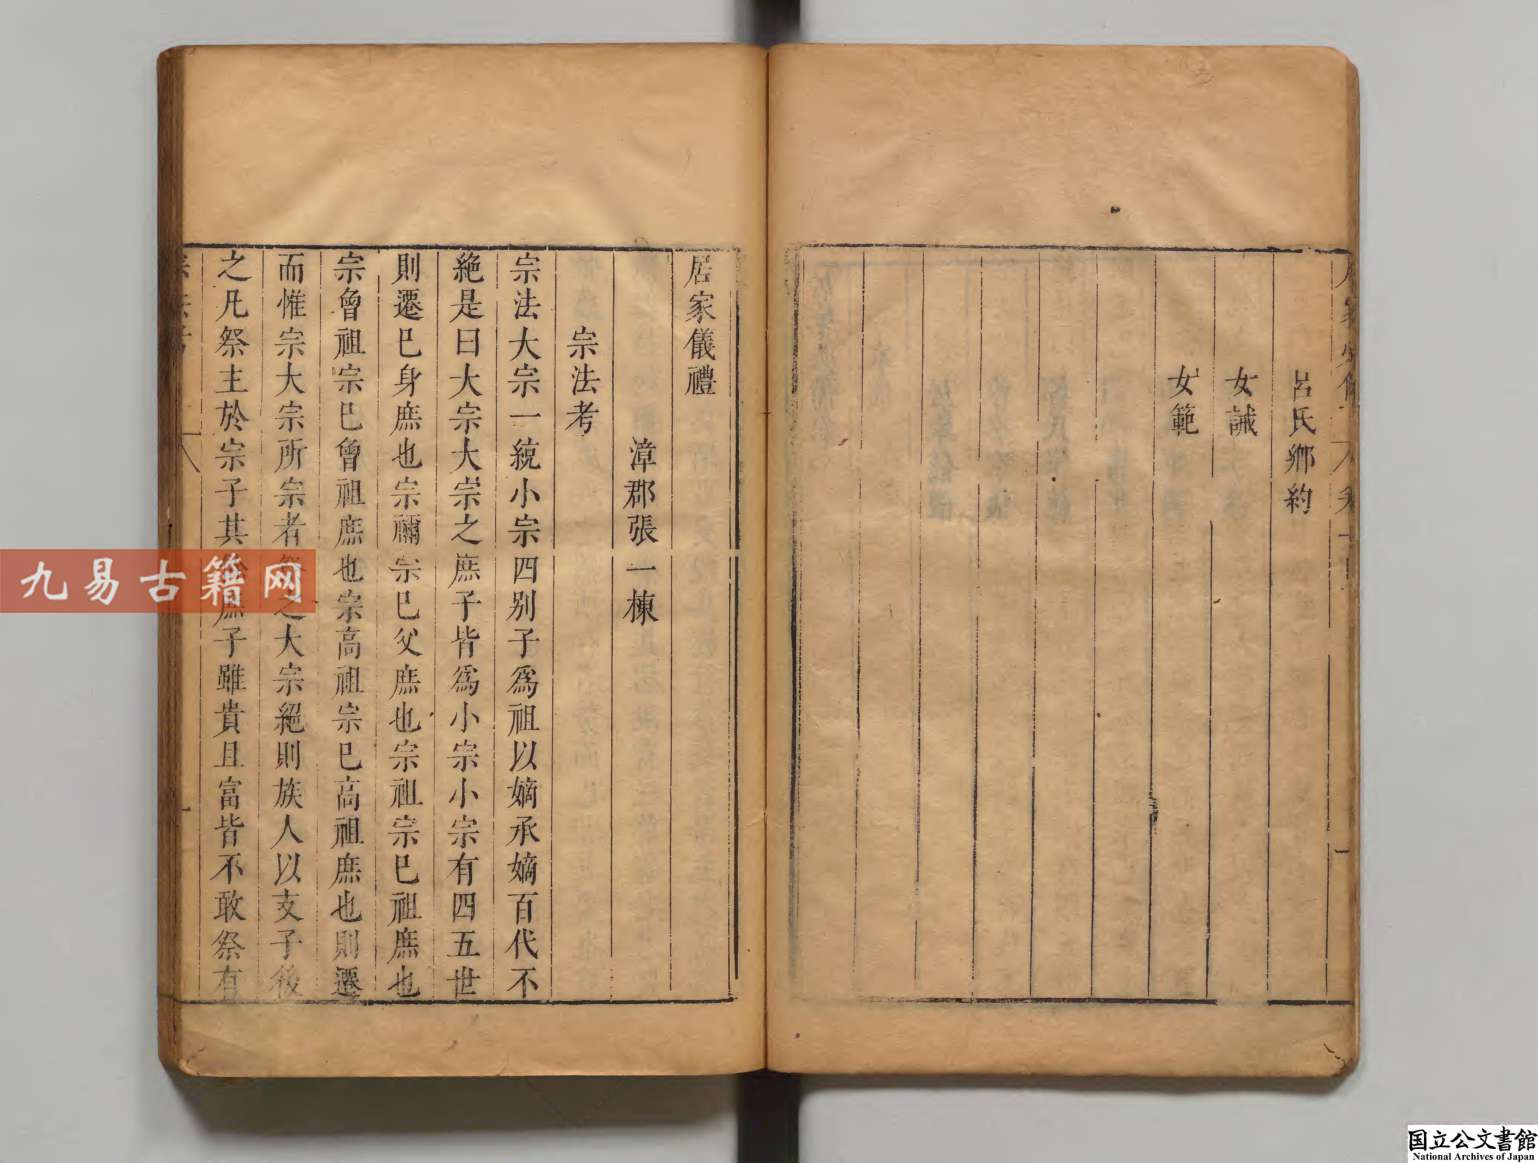 呂氏鄉約
女誡
女範
居家儀禮
漳郡張一棟
宗法考
宗法大宗一統小宗四別子爲祖以嫡承嫡百代不
絶是曰大宗大宗之庶子皆爲小宗小宗有四五世
則遷已身庶也宗禰宗已父庶也宗祖宗已祖庶也
宗曾祖宗已曾祖庶也宗高祖宗已高祖庶也則遷
而惟宗大宗所宗者祭之大宗絕則族人以支子後
之凡祭主於宗子其庶子雖貴且富皆不敢祭有
宗法考
九易古籍网
国立公文書館
National Archives of Japan